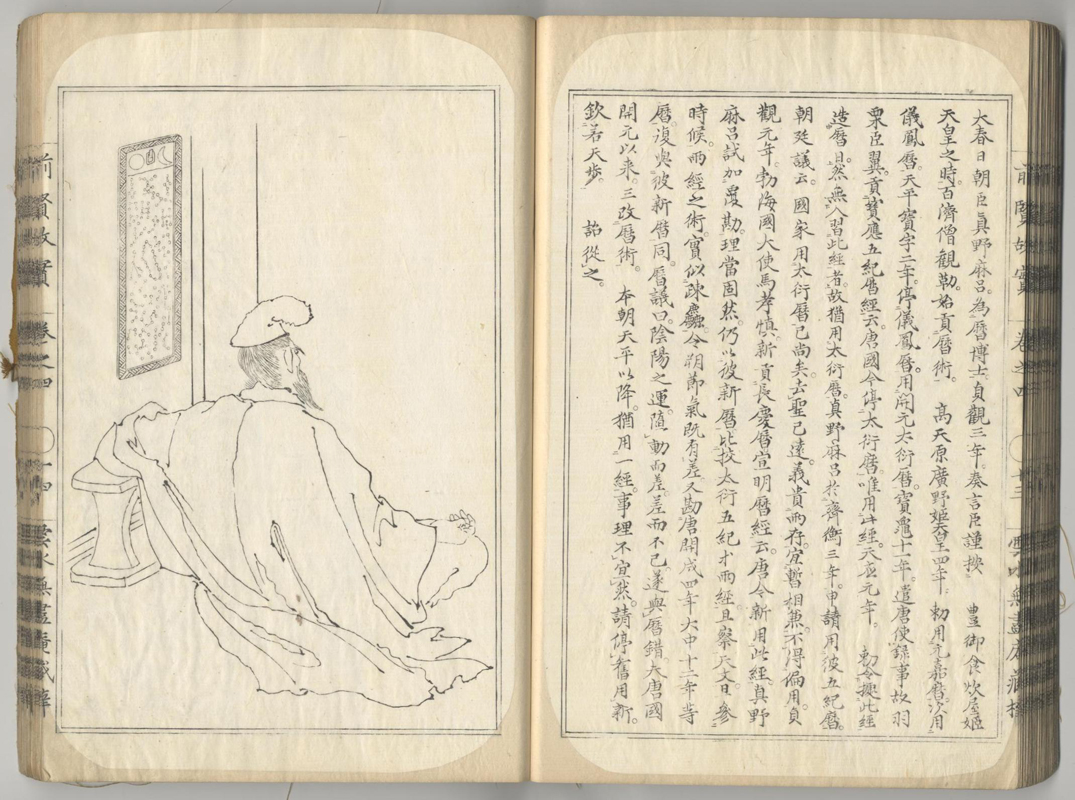 大春日朝臣真野麻呂。為曆博士。貞觀三年。奏言。臣謹按　豊御食炊屋姬
天皇之時。百濟僧觀勒。始貢曆術。　高天原廣野姬天皇四年。勅用元嘉曆。次用
儀鳳曆。天平寶字二年。停儀鳳曆。用開元大衍曆。寶龜十一年。遣唐使錄事故羽
栗臣翼。貢寶應五紀曆經云。唐國今停大衍曆。唯用此經。天應元年。　勅令據此經
造曆日。然無人習此經者。故猶用大衍曆。真野麻呂於齊衡三年。申請用彼五紀曆。
朝廷議云。國家用大衍曆已尚矣。去聖已遠。義貴兩存。宜暫相兼。不得偏用。貞
觀元年。勃海國大使馬孝慎。新貢長慶曆宣明曆經云。唐令新用此經。真野
麻呂試加覆勘。理當固然。仍以彼新曆。比挍大衍五紀才兩經。且察天文。且參
時候。兩經之術。實似疎麤。令朔節氣既有差。又勘唐開成四年大中十二年等
曆。復與彼新曆同。曆議曰。陰陽之運。隨動而差。差而不已。遂與曆錯。大唐國
開元以来。三改曆術。　本朝天平以降。猶用一經。事理不宜然。請停舊用新。
欽若天步。　詔從之。
前賢故實　卷之四　十三　雲水無盡庵藏梓
前賢故實　卷之四　十四　雲水無盡庵藏梓